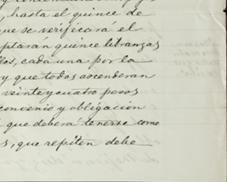 hasta el quince de
que se verificará el
plarán quince libranzas
los, cada una por la
y que todos ascenderan
veinte y cuatro pesos
convenio y obligacion
que deberá tenerse como
s, que repiten debe